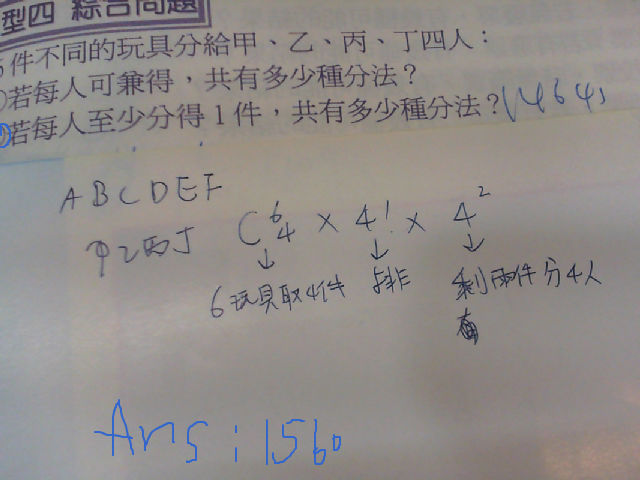 型四 綜合問題
6件不同的玩具分給甲、乙、丙、丁四人：
)若每人可兼得，共有多少種分法？
)若每人至少分得1件，共有多少種分法？
A B C D E F
甲乙丙丁 C⁶₄ × 4! × 4²
↓ ↓ ↓
6玩具取4件 排 剩兩件分4人
Ans：1560